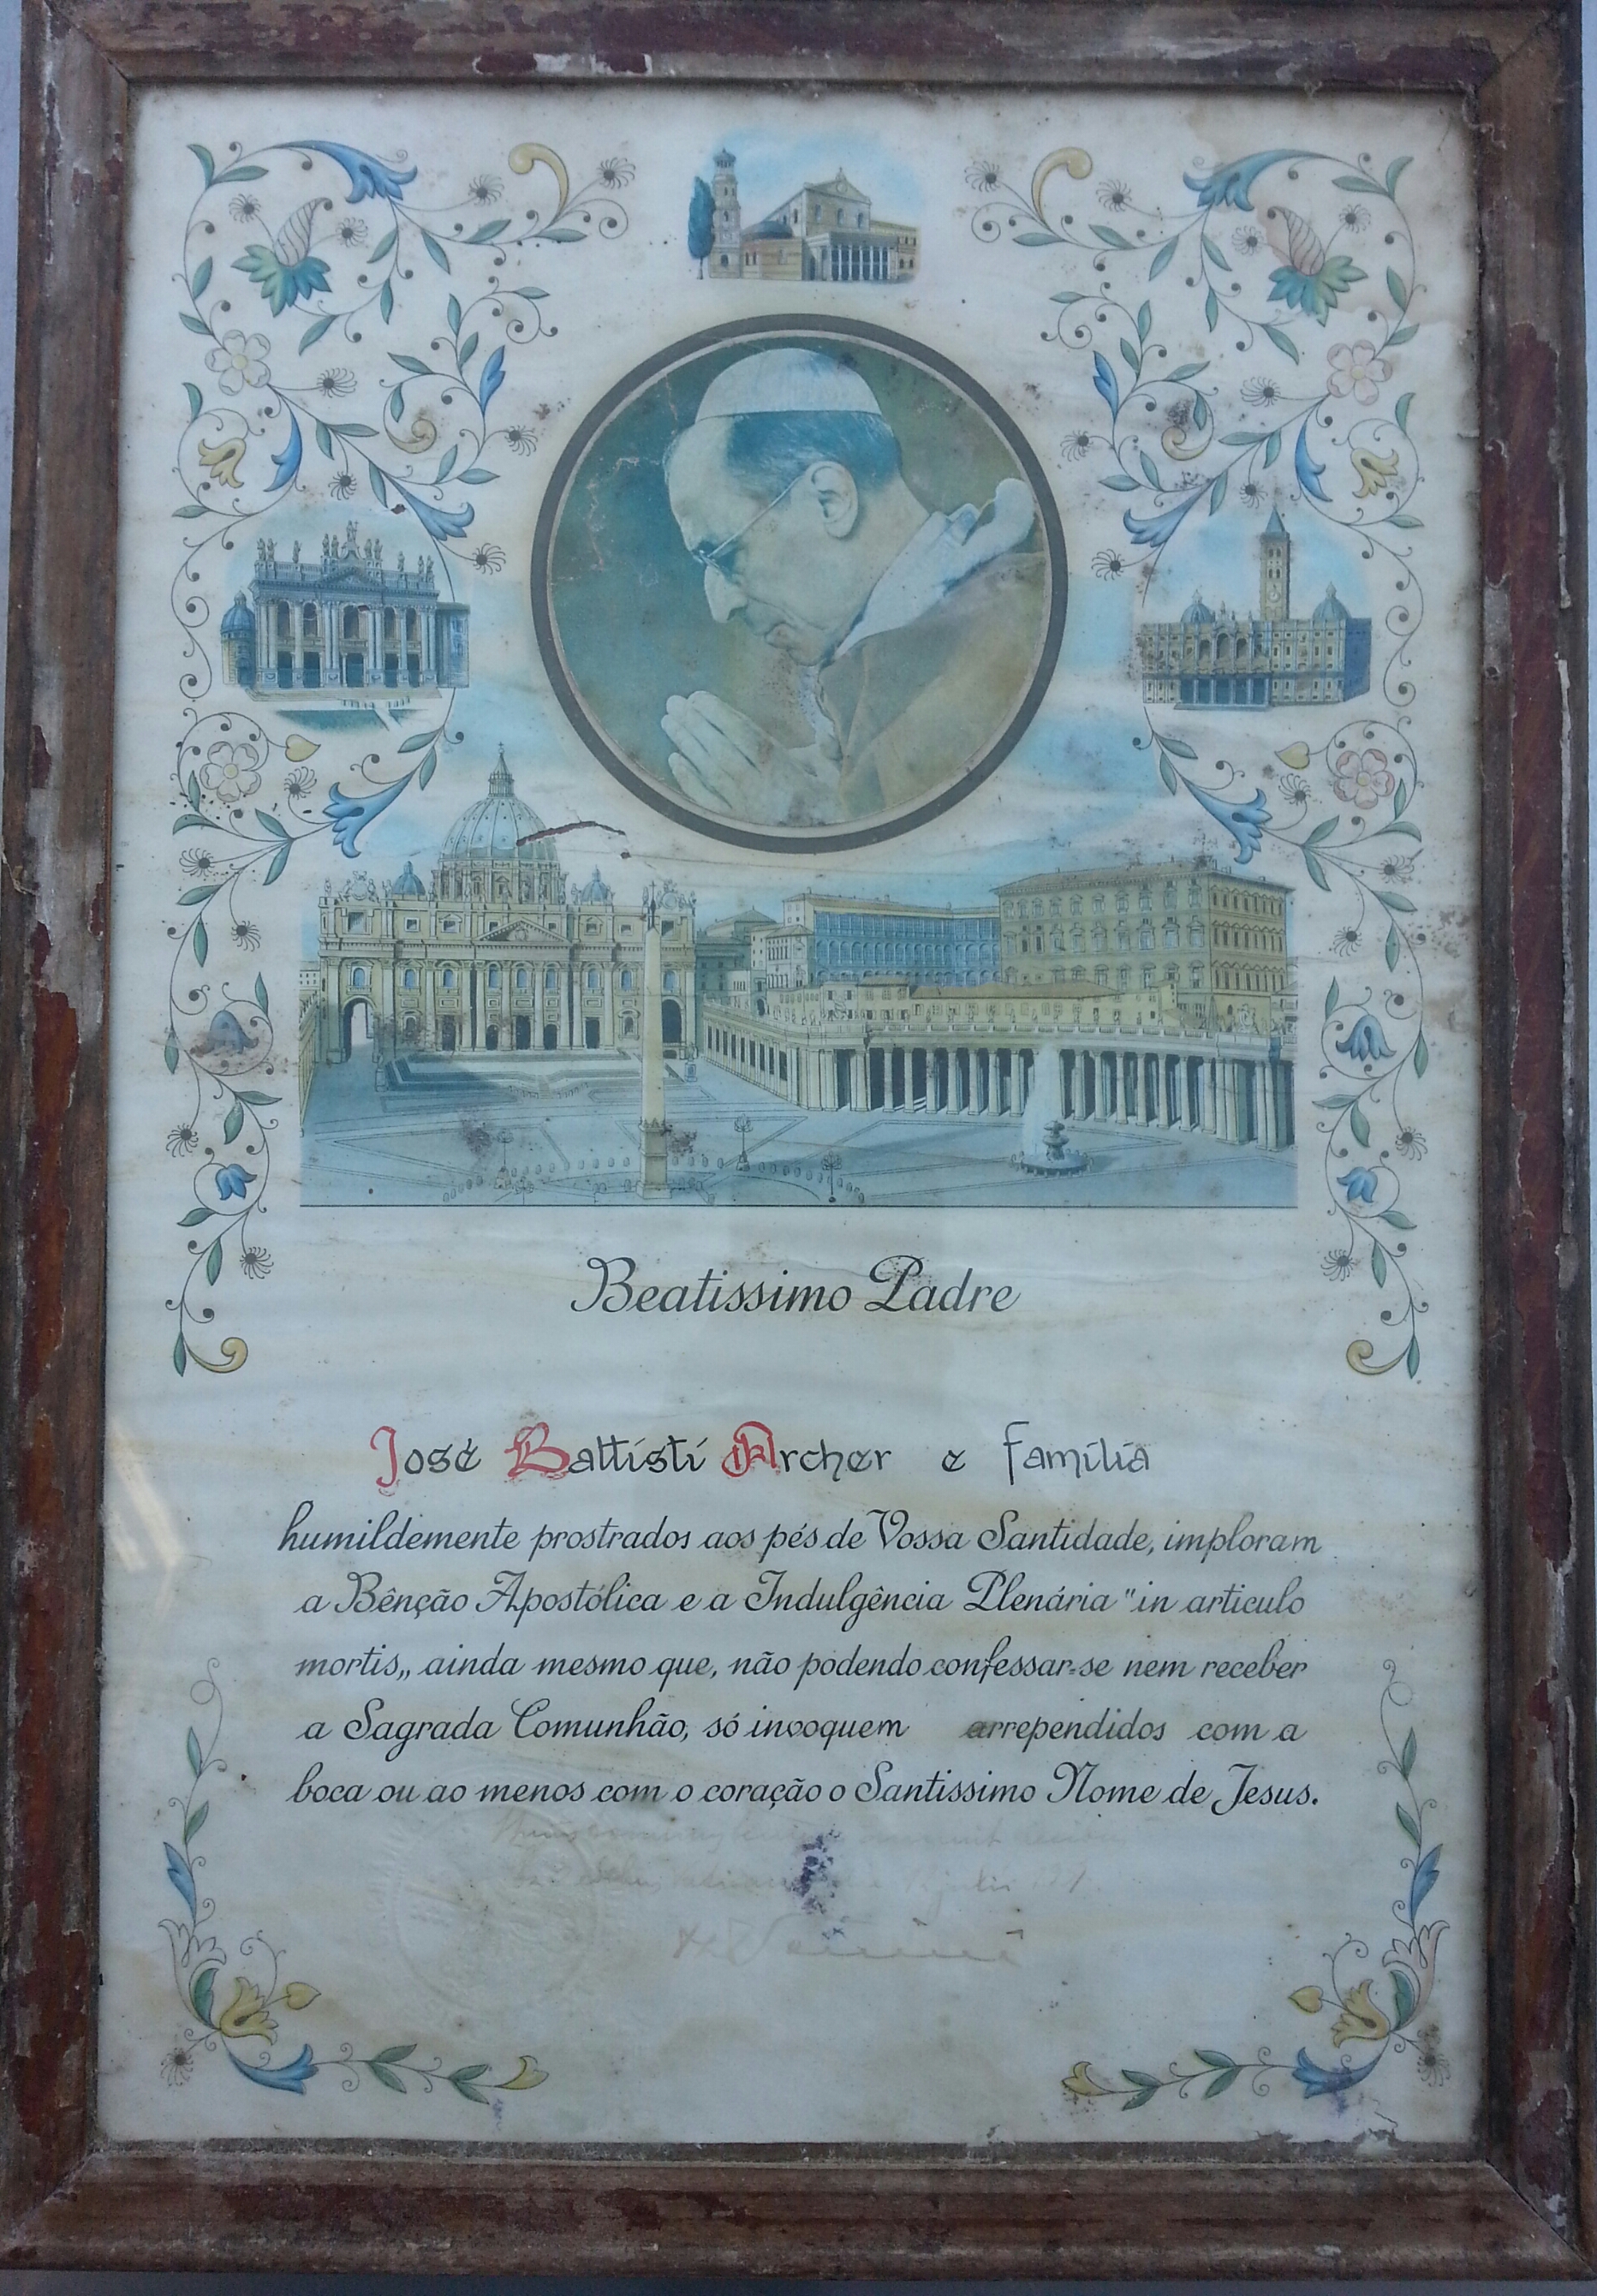 Beatissimo Padre
José Battisti Archer e família
humildemente prostrados aos pés de Vossa Santidade, imploram
a Bênção Apostólica e a Indulgência Plenária "in articulo
mortis,, ainda mesmo que, não podendo confessar-se nem receber
a Sagrada Comunhão, só invoquem arrependidos com a
boca ou ao menos com o coração o Santissimo Nome de Jesus.